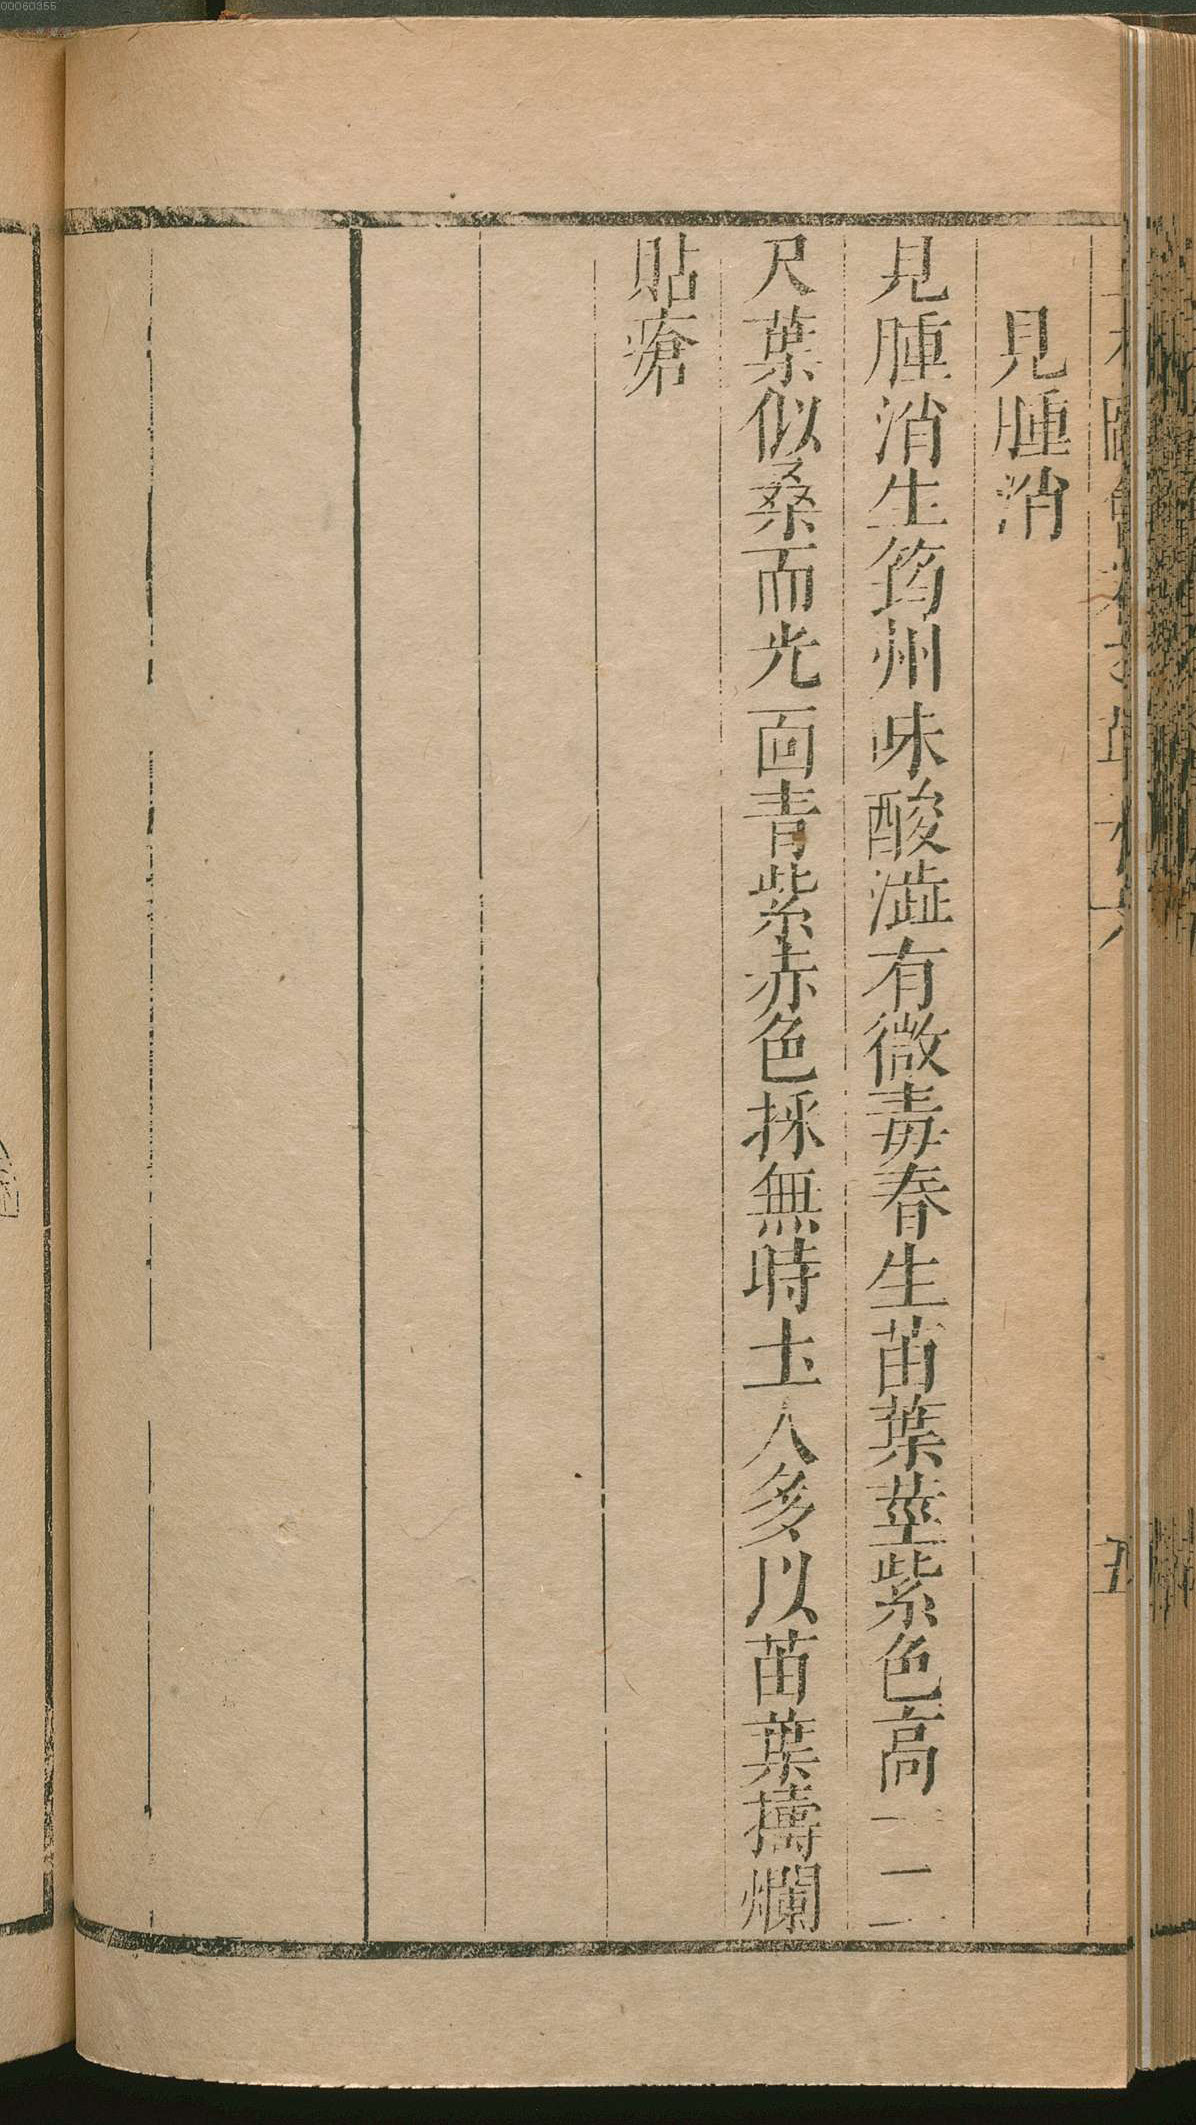 見腫消
見腫消生筠州味酸澁有微毒春生苗葉莖紫色高一二
尺葉似桑而光面青紫赤色採無時土人多以苗葉擣爛
貼瘡
00060355